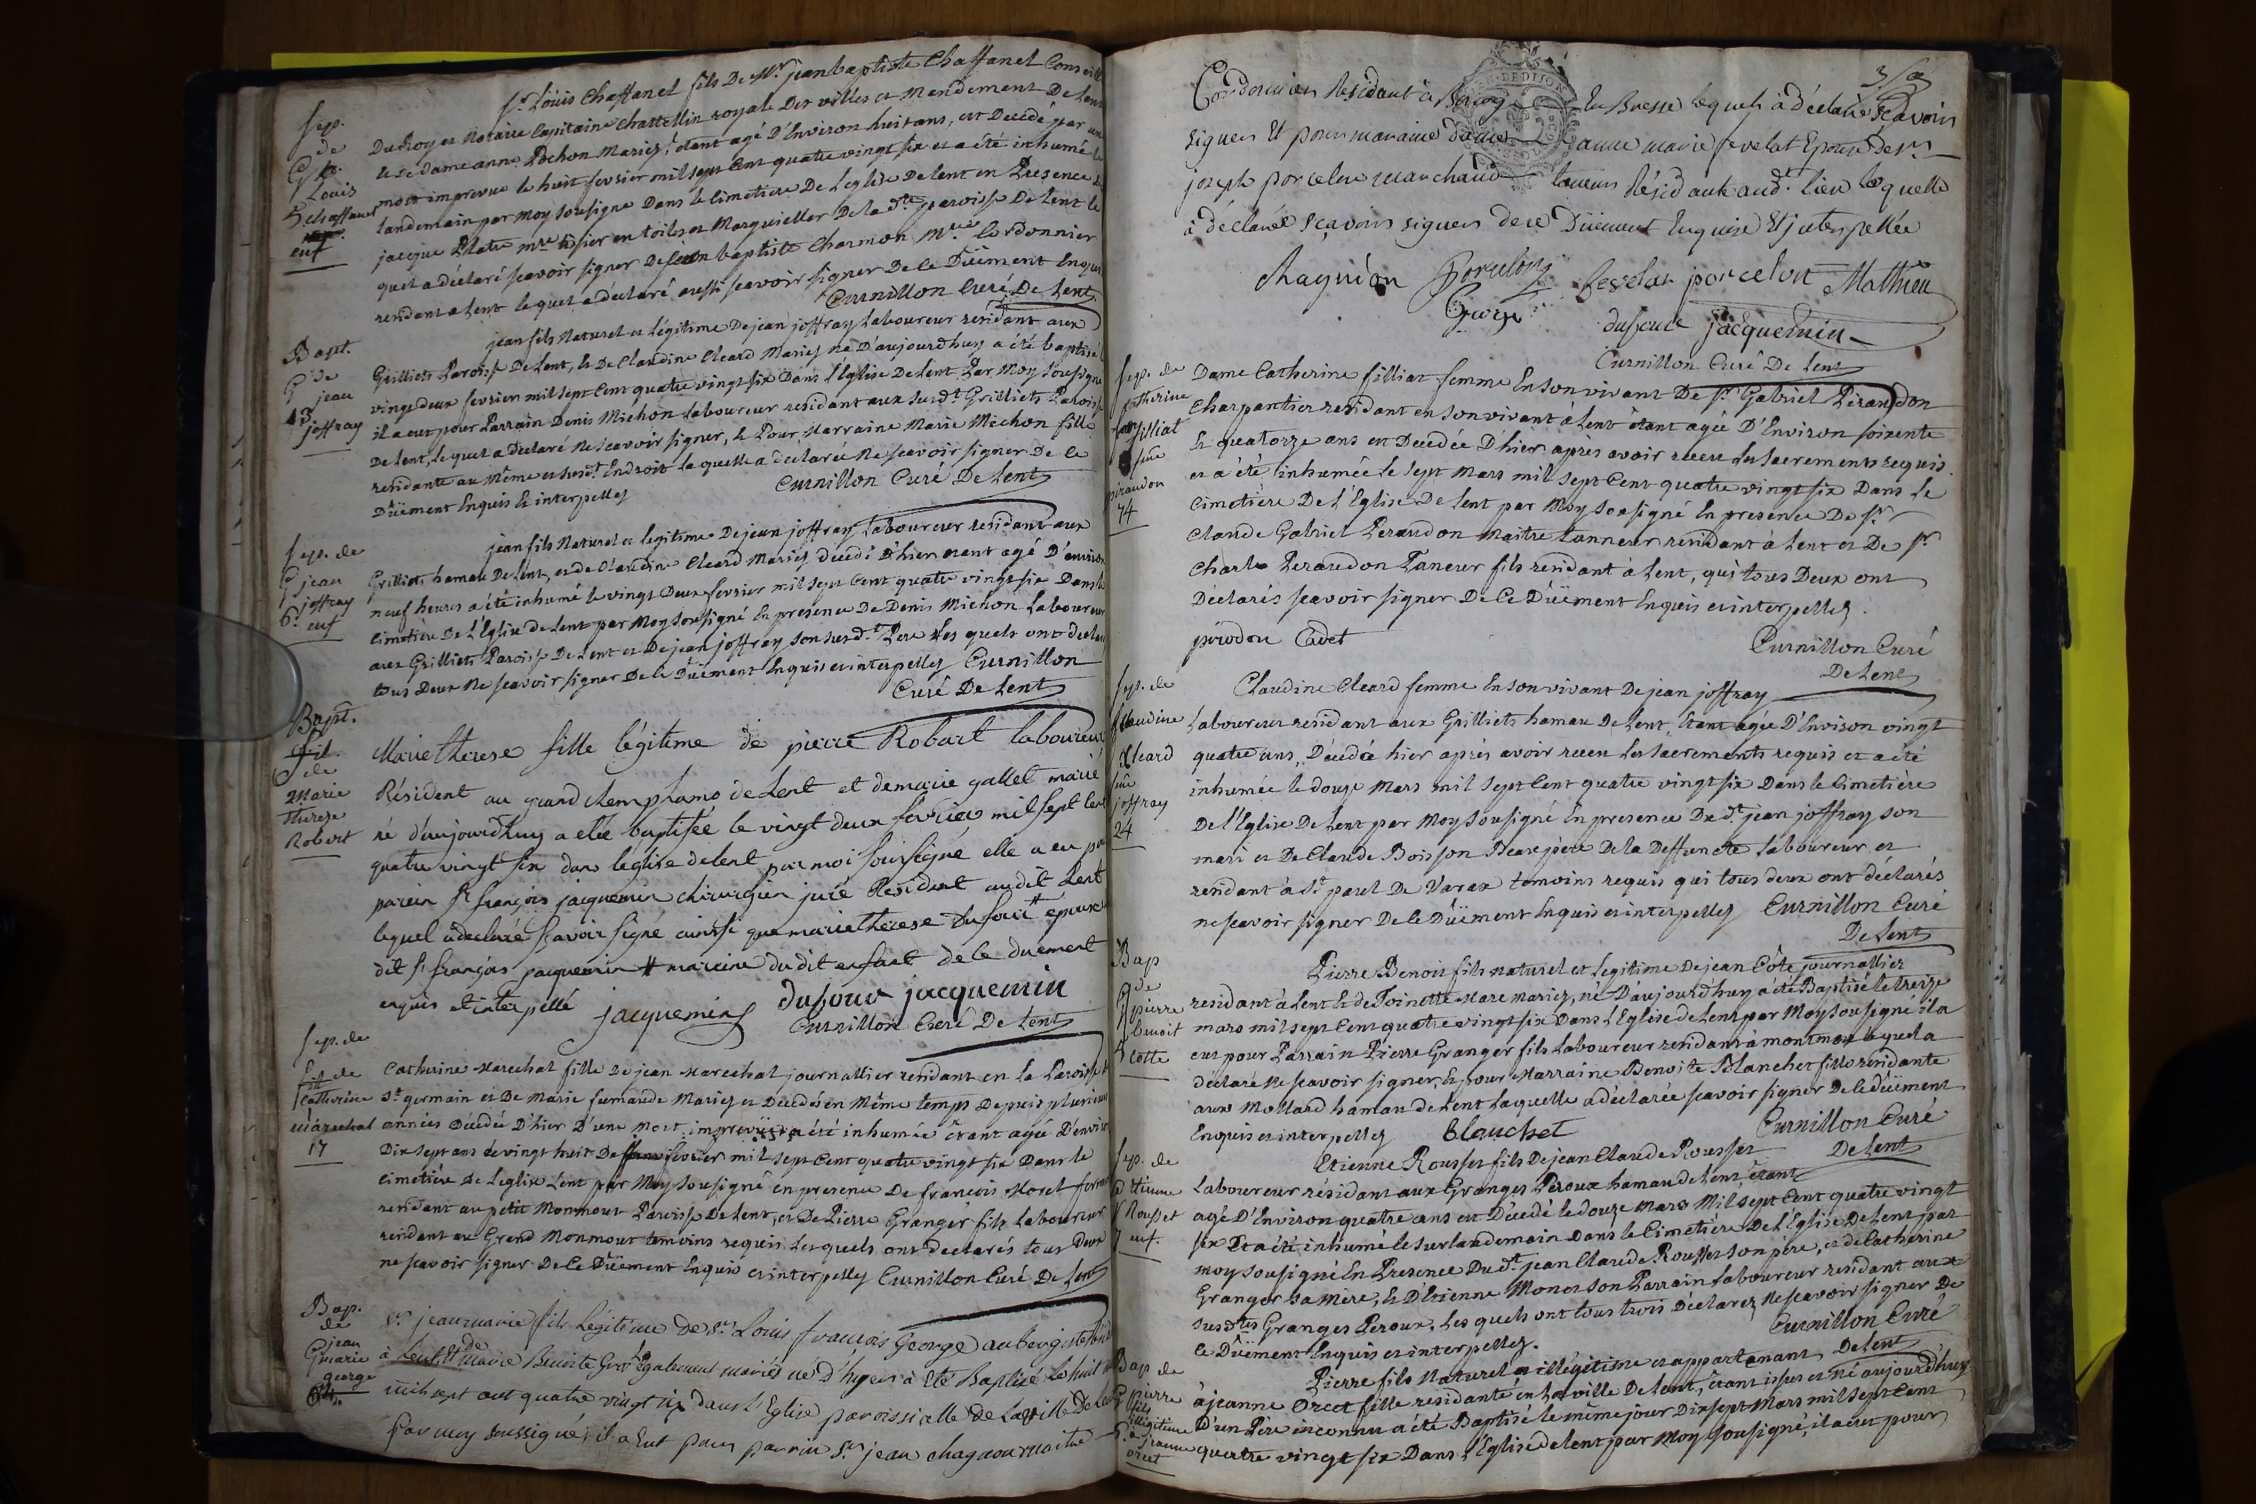 Sep.
de
Louis
Chaffanel
enf
Sr. Louis Chaffanel fils De Mr. jean baptiste Chaffanel Conseiller
Du Roy et Notaire Capitaine Chattellin royale Des villes et Mandement De Lent
et De dame anne Pochon Mariez, étant agé D'Environ huit ans, est Decedé par une
mort imprevue le huit fevrier mil sept Cent quatre vingt six et a été inhumé le
landemain par moy Sousigné Dans le Cimetiere De L'eglise De Lent en Presence de
jacque Platre mre tissier en toiles et Marguiller De la dte paroisse De Lent le
quel a déclaré scavoir signer De jean baptiste Charmon mtre Cordonnier
residant a Lent le quel a déclaré aussi scavoir signer De Ce Düement Enquis
Curnillon Curé De Lent
Bapt.
de
jean
joffray
13
jean fils Naturel et légitime De jean joffray Laboureur residant aux
Grilliets Paroisse De Lent, et De Claudine Cleard Mariez né D'aujourdhuy a été baptisé le
vingt deux fevrier mil sept Cent quatre vingt six Dans L'Eglise De Lent Par Moy Sousigné
il a eut pour Parrain Denis Michon Laboureur residant aux susdt Grilliets Paroisse
De Lent, Le quel a Declaré Ne Scavoir signer, et Pour Marraine Marie Mechon fille
residante au Même et susdt Endroit la quelle a déclarée Ne scavoir signer De Ce
Düement Enquis Et interpellez
Curnillon Curé De Lent
Sep. de
jean
joffray
6. enf
jean fils Naturel et legitime De jean joffray Laboureur residant aux
Grilliets hamau De Lent, et de Claudine Cleard Mariez decedé D'hier etant agé D'environ
neuf heures a été inhumé le vingt Deux fevrier mil sept Cent quatre vingt six Dans le
Cimetière De L'Eglise de Lent par Moy Sousigné En presence De Denis Michon Laboureur
aux Grilliets Paroisse De Lent et De jean joffray son susdt Pere Les quels ont declaré
tous Deux Ne scavoir signer De Ce Düement Enquis et interpellez Curnillon
Curé De Lent
Bapt.
fil.
de
Marie
Therese
Robert
Marie therese fille légitime de pierre Robart laboureur
Résident au grand de Lent et de marie gallet marié
né d'aujourdhuy a etée baptisée le vingt deux fevrier mil sept cent
quatre vingt six dans leglise de lent par moi soussigné elle a eu pour
parein sr françois jacquemin chirurgien juré Resident audit Lent
lequel a declaré scavoir signé ainssi que marie therese Dufour epouse
dit sr françois jacquemin mareine du dit enfant de ce duement
enquis et interpellé jacquemin dufour jacquemin
Curnillon Curé De Lent
Sep. de
fil de
Catherine
Maréchal
17
Catherine Marechal fille de jean Marechal journallier residant en la Paroisse
St. germain et De Marie fumande Mariez et Decedés en Même temps Depuis plusieurs
années Decedée D'hier D'une Mort imprevüe a été inhumée étant agée D'environ
Dix sept ans le vingt huit De fevrier mil sept Cent quatre vingt six Dans le
Cimetière De L'eglise Lent par Moy Sousigné en presence De francois Morel
residant au petit Monmout Paroisse De Lent, et De Pierre Granger fils Laboureur
residant au Grand Monmout temoins requis Les quels ont declarés tous Deux
ne scavoir signer De Ce Düement Enquis et interpellez Curnillon Curé De Lent
Bap.
de
jean
marie
george
sr. jean marie fils Légitime de Sr. Louis françois George aubergiste
à Lent Et de marie Benoite également mariés né d'hyer à Eté Baptisé Le huit
mil sept cent quatre vingt six dans L'Eglise paroissialle de La ville de Lent
par moy soussigné; il a Eut pour parrein Sr. jean chagnon maitre
Cordonnier Résidant à En Bresse lequel à déclaré Scavoir
signer Et pour maraine anne marie fevelat Epouse de Sr.
joseph porcelon marchand Résidante audt. lieu Laquelle
à déclarée sçavoir signer de ce Düement Enquise Et interpellée
chagnion Porcelon fevelat porcelon Mathieu
George dufour jacquemin
Curnillon Curé De Lent
Sep. de
Catherine
filliat
fme
piraudon
74
Dame Catherine filliat femme En son vivant De Sr. Gabriel Peraudon
Charpantier residant en son vivant a Lent étant agée D'Environ soixente
Et quatorze ans est Decedée D'hier après avoir receu Les Sacrements requis
et a été inhumée Le sept Mars mil sept Cent quatre vingt six Dans Le
Cimetière De L'Eglise De Lent par Moy Sousigné En presence De Sr.
Claude Gabriel Peraudon Maitre tanneur residant à Lent et De Sr.
Charle Peraudon Taneur fils residant à Lent, qui tous Deux ont
Declarés scavoir signer De Ce Düement Enquis et interpellez.
pirodon Cadet
Curnillon Curé
De Lent
Sep. de
Claudine
Cleard
fme
joffray
24
Claudine Cleard femme En son vivant De jean joffray
Laboureur residant aux Grilliets hamau De Lent, étant agée D'Environ vingt
quatre ans, Décedée hier après avoir receu Les sacrements requis et a été
inhumée le douze Mars mil sept Cent quatre vingt six Dans le Cimetière
De L'Eglise De Lent par Moy Sousigné En presence Du dt. jean joffray son
mari et De Claude Boisson Beaupère De la Deffuncte Laboureur et
residant à St. paul De Varax temoins requis qui tous deux ont déclarés
ne scavoir signer De Ce Düement Enquis et interpellez Curnillon Curé
De Lent
Bap
de
pierre
benoit
Cotte
Pierre Benoit fils naturel et Legitime De jean Côte journallier
residant à Lent Et de Toinette Mare mariez, né D'aujourdhuy a été Baptisé le treize
mars mil sept Cent quatre vingt six Dans L'Eglise de Lent par Moy Sousigné il a
eut pour Parrain Pierre Granger fils Laboureur residant à monmout lequel a
déclaré Ne scavoir signer, Et Pour Marraine Benoite Blanchet fille residante
aux Mollard hamau de Lent Laquelle a déclarée scavoir signer De Ce düement
Enquis et interpellez Blanchet Curnillon Curé
De Lent
Sep. de
Etienne
Rousset
enf.
Etienne Rousset fils De jean Claude Rousset
Laboureur résidant aux Granges Peroux hamau de Lent, étant
agé D'Environ quatre ans est Décedé le douze Mars Mil sept Cent quatre vingt
six Et a été inhumé le surlandemain Dans le Cimetière De L'Eglise De Lent par
moy Sousigné En Presence Du dt. jean Claude Rousset son père, et de Catherine
Granger sa Mere, Et D'Etienne Monet son Parrain Laboureur residant aux
susdtes Granges Peroux, Les quels ont tous trois Déclarez Ne scavoir signer De
Ce Düement Enquis et interpellez.
Curnillon Curé
De Lent
Bap. de
Pierre
fils
illégitime
a jeanne
orcet
Pierre fils Naturel et illégitime et appartenant
à jeanne Orcet fille residante en La ville De Lent, étant issu et né aujourd'huy
D'un Père inconnu a été Baptisé le même jour Dixsept Mars mil sept Cent
quatre vingt six Dans L'Eglise de Lent par Moy Sousigné, il a eut pour